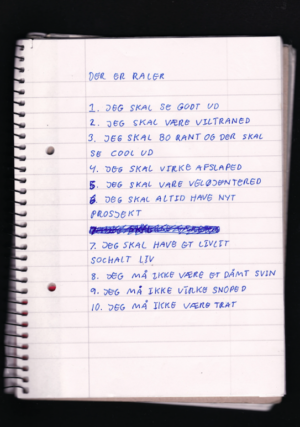 DER ER RALER
1. JEG SKAL SE GODT UD
2. JEG SKAL VÆRE VILTRANED
3. JEG SKAL BO RANT OG DER SKAL
SE COOL UD
4. JEG SKAL VIRKE AFSLAPED
5. JEG SKAL VARE VELOJENTERED
6. JEG SKAL ALTID HAVE NYT
PROSJEKT
7. JEG SKAL HAVE ET LIVLIT
SOCHALT LIV
8. JEG MÅ IKKE VÆRE ET DÅMT SVIN
9. JEG MÅ IKKE VIRKE SNOPED
10. JEG MÅ IKKE VÆRE TRAT